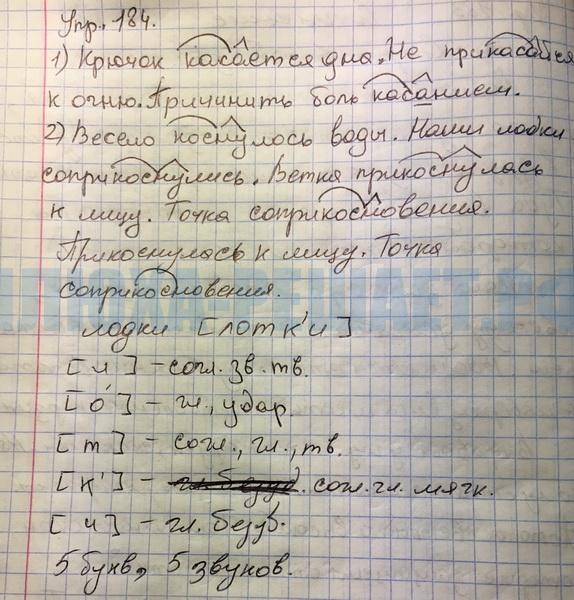 Упр. 184.
1) Крючок касается дна. Не прикасайся
к огню. Причинить боль касанием.
2) Весело коснулось воды. Наши лодки
соприкоснулись. Ветка прикоснулась
к лицу. Точка соприкосновения.
Прикоснулась к лицу. Точка
соприкосновения.
лодки [лотк'и]
[л] – согл. зв. тв.
[о́] – гл., удар
[т] – согл., гл., тв.
[к'] – согл. гл. мягк.
[и] – гл. безуд.
5 букв, 5 звуков.